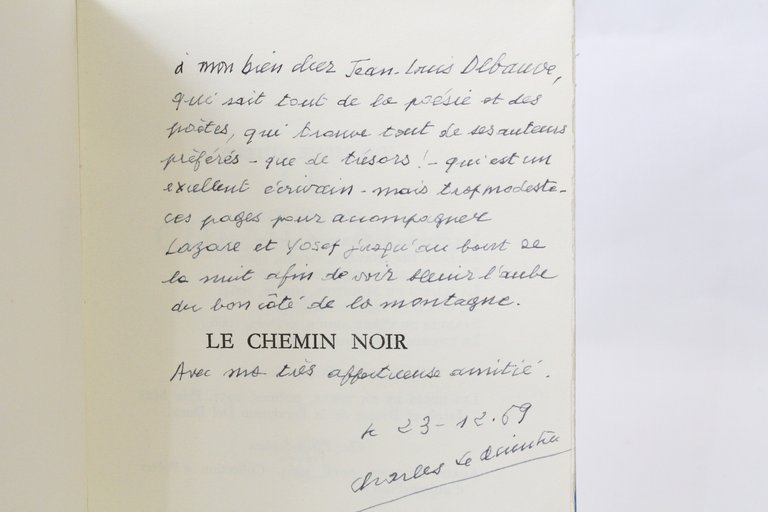 à mon bien cher Jean-Louis Debauve,
qui sait tout de la poésie et des
poètes, qui trouve tout de ses auteurs
préférés - que de trésors ! - qui est un
excellent écrivain - mais trop modeste -
ces pages pour accompagner
Lazare et Yosef jusqu'au bout de
la nuit afin de voir venir l'aube
du bon côté de la montagne.
LE CHEMIN NOIR
Avec ma très affectueuse amitié.
le 23-12.69
Charles Le Quintrec